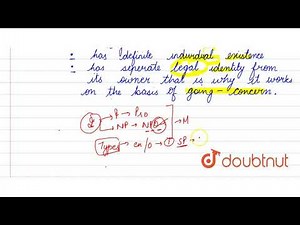 : has definite individual existence
: has seperate legal identity from
its owner that is why it works
on the basis of going-concern.
P → Pro
NP → NPO
M
Types → en/o → 1 SP →
doubtnut